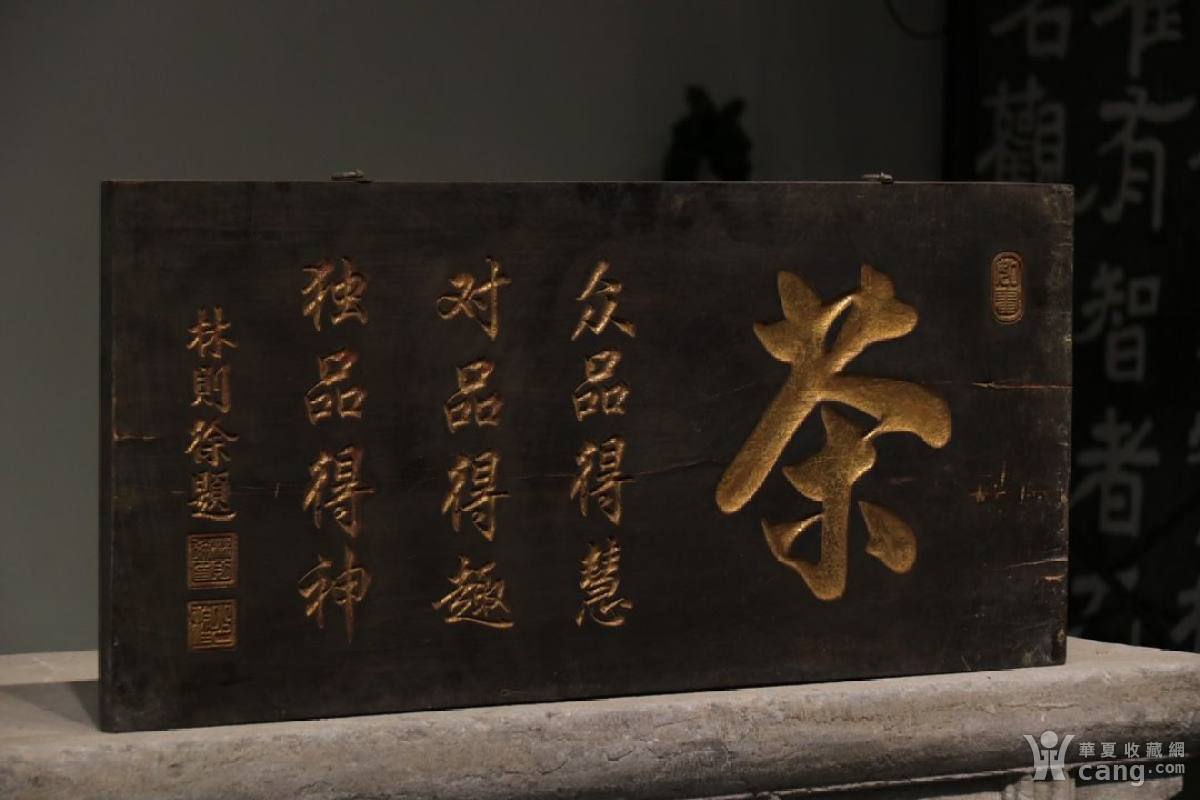 茶
众品得慧
对品得趣
独品得神
林則徐題
石觀
唯有智者
華夏收藏網
cang.com